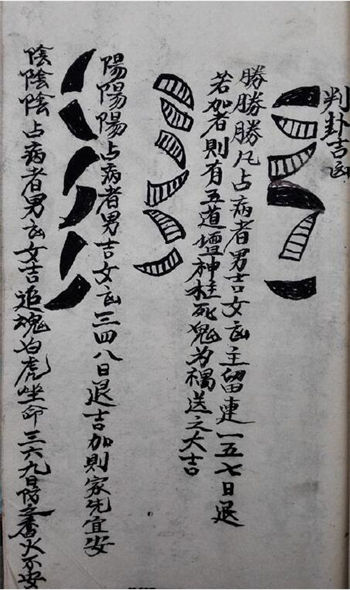 判卦吉凶
勝勝勝凡占病者男吉女凶主留連一五七日退
若加者則有五道壇神枉死鬼為禍送之大吉
陽陽陽占病者男吉女凶三四八日退吉加則家先宜安
陰陰陰占病者男凶女吉追魂白虎坐命三六九日防之香火不安